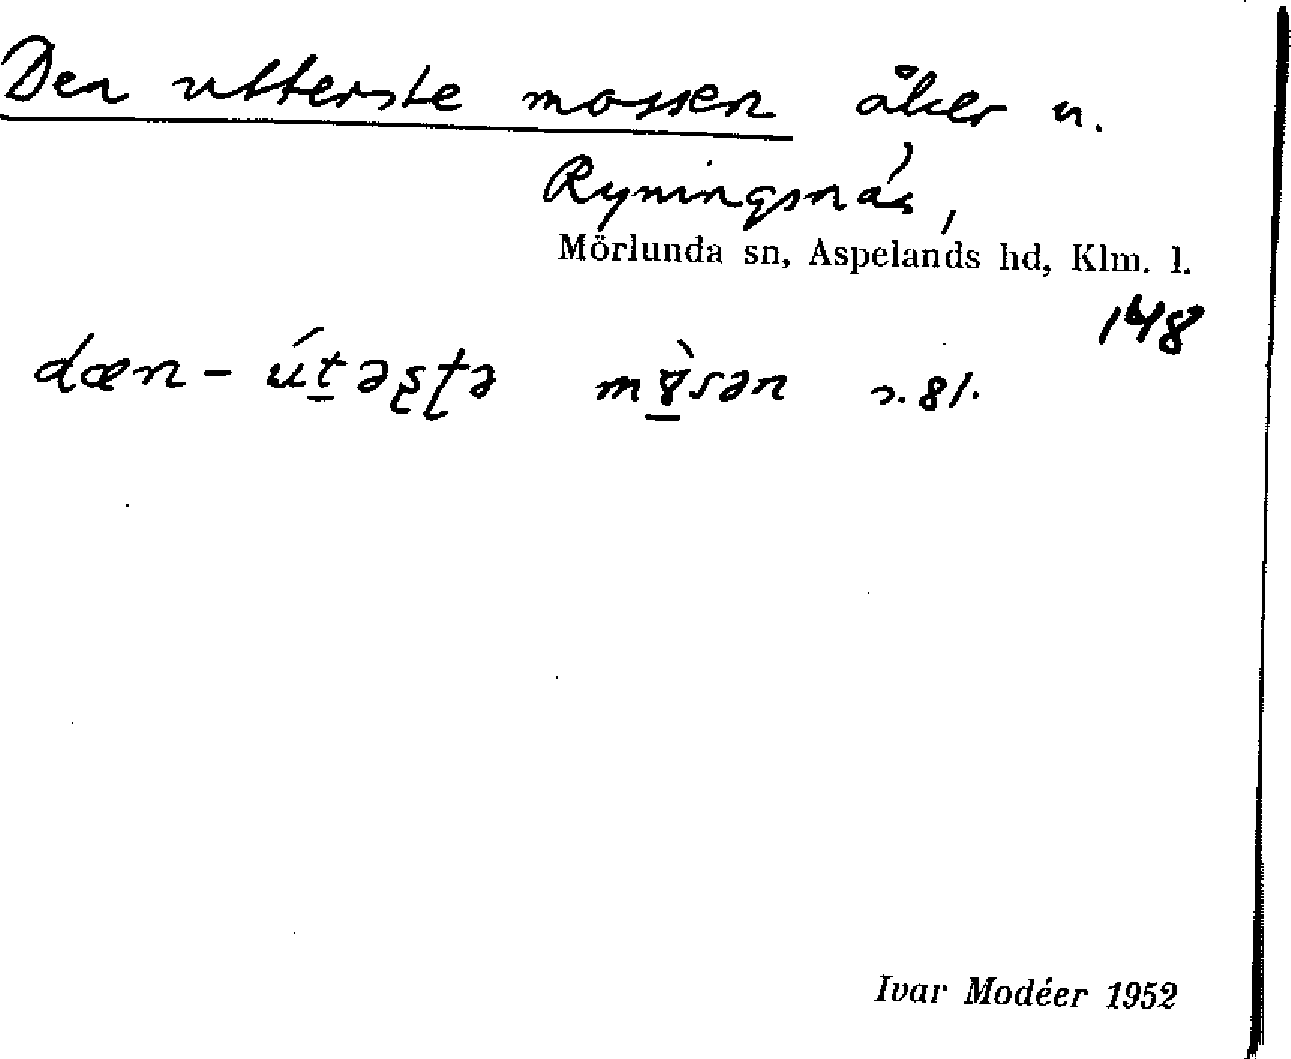 Den utterste mossen åker u.
Ryningsnäs,
Mörlunda sn, Aspelands hd, Klm. l.
148
dæn - út̲əʂʈə m sən s. 81.
Ivar Modéer 1952